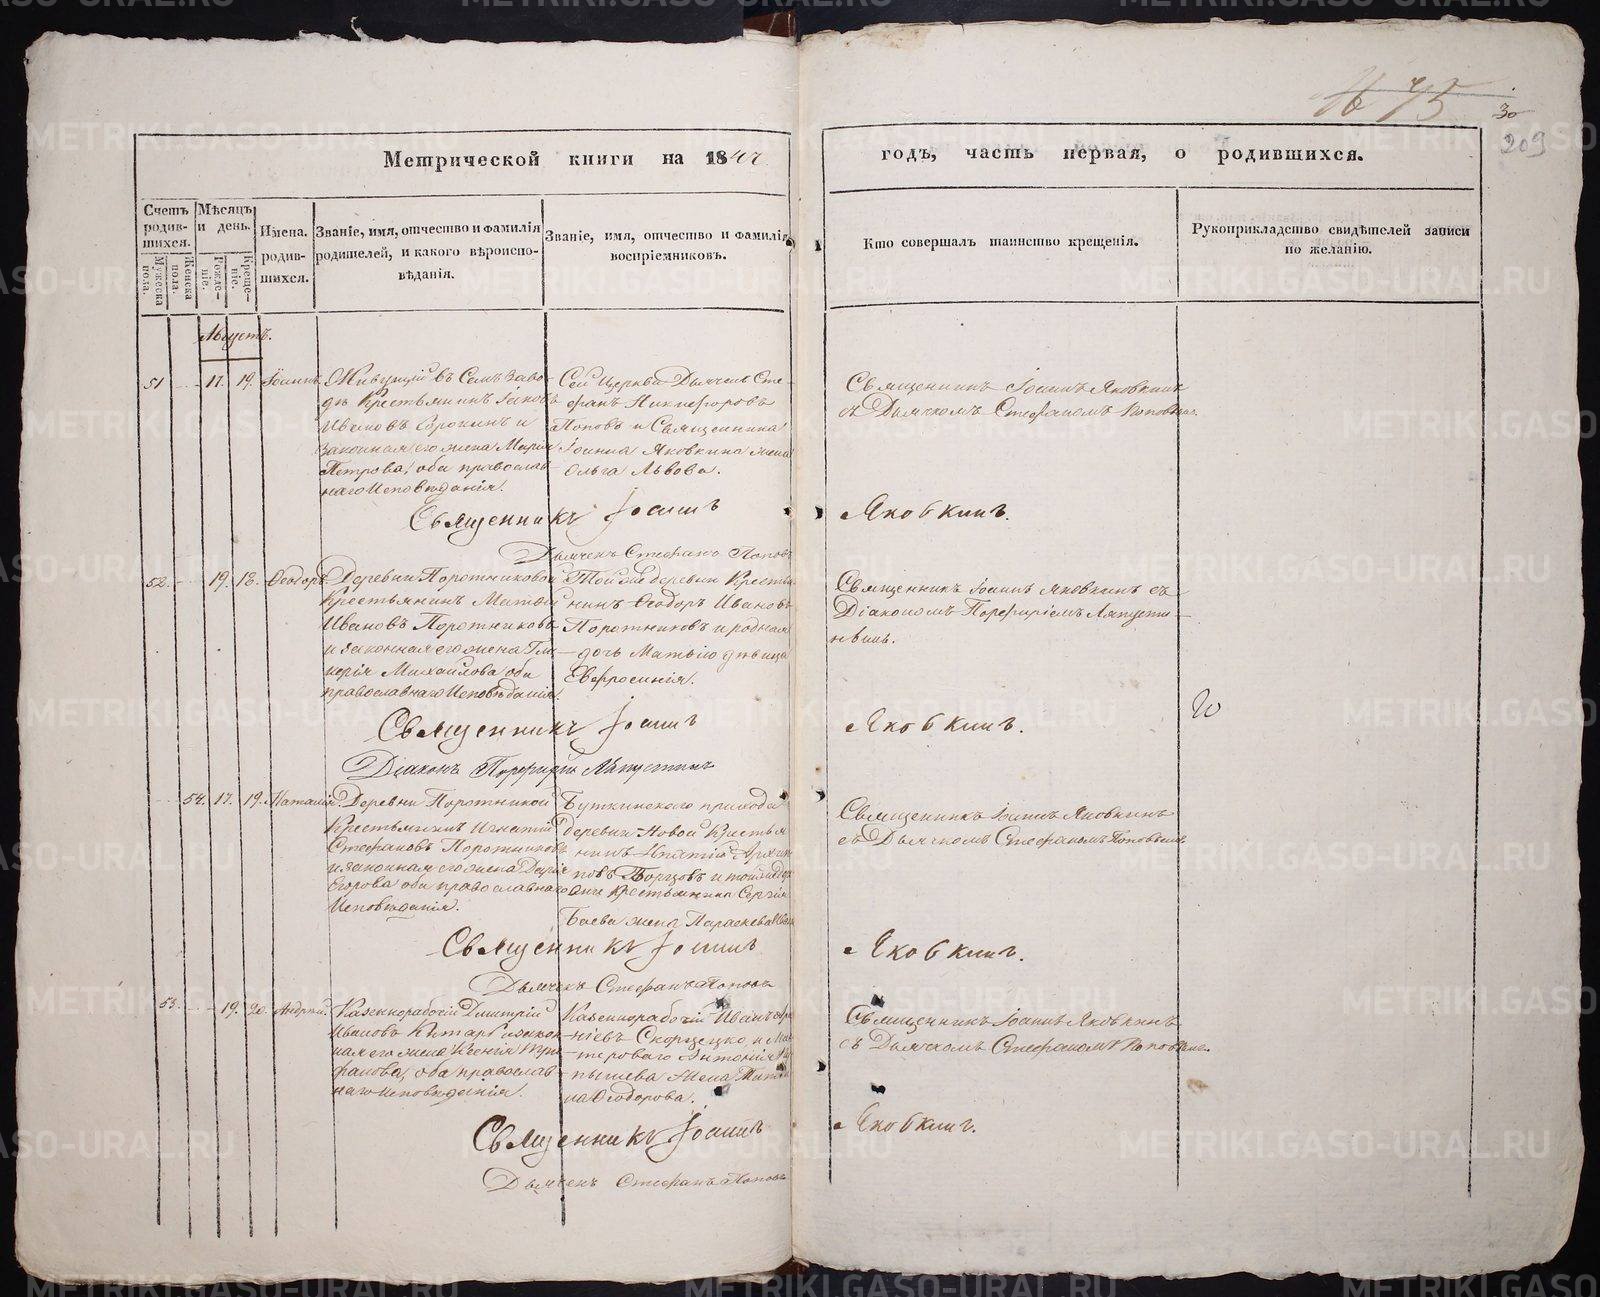 30
209
Метрической книги на 1847
годъ, часть первая, о родившихся.
Счетъ родившихся.
Мужеска пола.
Женска пола.
Мѣсяцъ и день.
Рожденіе.
Крещеніе.
Имена родившихся.
Званіе, имя, отчество и фамилія родителей, и какого вѣроисповѣданія.
Званіе, имя, отчество и фамилія воспріемниковъ.
Кто совершалъ таинство крещенія.
Рукоприкладство свидѣтелей записи по желанію.
Августъ.
51 17. 19. Іоаннъ
Живущій въ Семъ Заво-
дѣ Крестьянинъ Іаковъ
Ивановъ и
законная его жена Марія
Петрова, оба православ-
наго Исповѣданія.
Сей Церкви Дьячекъ Сте-
фанъ Никифоровъ
Поповъ и Священника
Іоанна Яковкина жена
Ольга Львова.
Священникъ Іоаннъ Яковкинъ
съ Дьячкомъ Стефаномъ Поповымъ.
Священникъ Іоаннъ Яковкинъ.
Дьячекъ Стефанъ Поповъ
52. 19. 18. Ѳеодоръ
Деревни Поротниковой
Крестьянинъ Матвій
Ивановъ Поротниковъ
и законная его жена Гли-
керія Михайлова оба
православнаго Исповѣданія.
Той же деревни Крестья-
нинъ Ѳеодоръ Ивановъ
Поротниковъ и родная
дочь Матвія дѣвица
Евфросинія.
Священникъ Іоаннъ Яковкинъ съ
Діакономъ Порфиріемъ Ляпусти-
нымъ.
Священникъ Іоаннъ Яковкинъ.
Діаконъ Порфирій Ляпустинъ
54. 17. 19. Наталія.
Деревни Поротникой
Крестьянинъ Игнатій
Стефановъ Поротниковъ
и законная его жена Дарія
Егорова оба православнаго
Исповѣданія.
Буткинскаго прихода
деревни Новой Крестья-
нинъ
и той же де-
вни Крестьянина Сергія
Баева жена Параскева
Священникъ Іоаннъ Яковкинъ
съ Дьячкомъ Стефаномъ Поповымъ.
Священникъ Іоаннъ Яковкинъ.
Дьячекъ Стефанъ Поповъ
53. 19. 20. Андрей.
Казеннорабочій Дмитрій
Ивановъ и закон-
ная его жена Ксенія Три-
фанова, оба православ-
наго исповѣданія.
Казеннорабочій Иванъ
и Мас-
тероваго Антонія
жена
на Ѳеодорова.
Священникъ Іоаннъ Яковкинъ
съ Дьячкомъ Стефаномъ Поповымъ.
Священникъ Іоаннъ Яковкинъ.
Дьячекъ Стефанъ Поповъ
METRIKI.GASO-URAL.RU